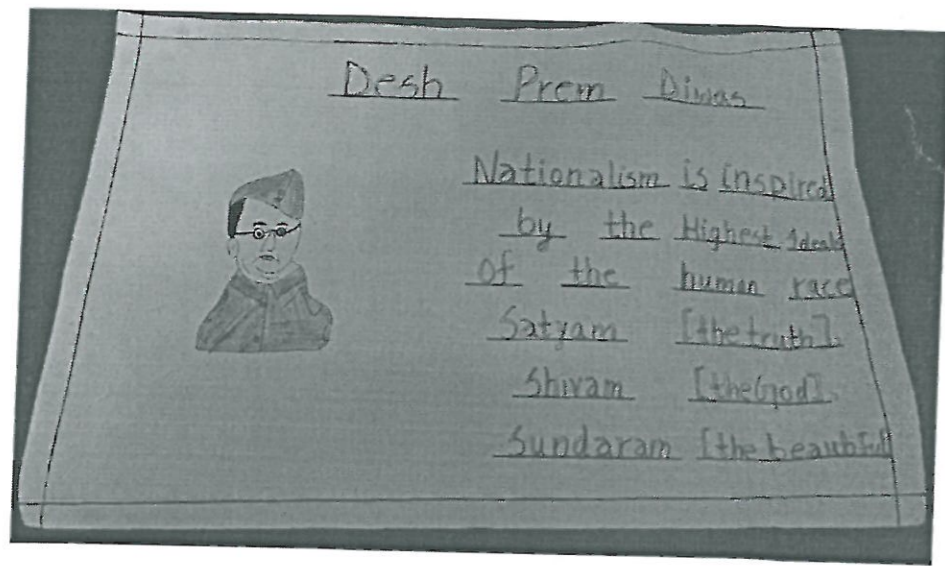 Desh Prem Diwas
Nationalism is inspired
by the Highest Ideals
of the human race
Satyam [the truth].
Shivam [the God].
Sundaram [the beautiful